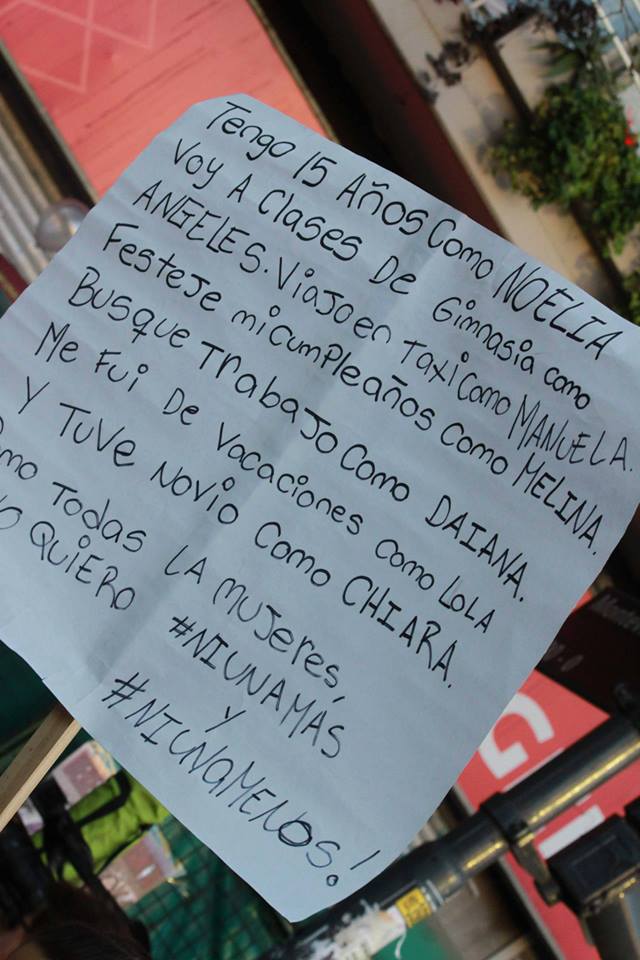 Tengo 15 Años Como NOELIA
Voy A Clases De Gimnasia como
ANGELES. Viajo en Taxi Como MANUELA.
Festeje mi cumpleaños como MELINA.
Busque Trabajo Como DAIANA.
Me Fui De Vacaciones como LOLA
Y TuVe Novio Como CHIARA.
omo Todas LA mujeres,
O QUIERO #NIUNAMÁS
y
#NIUNAMENOS!
G